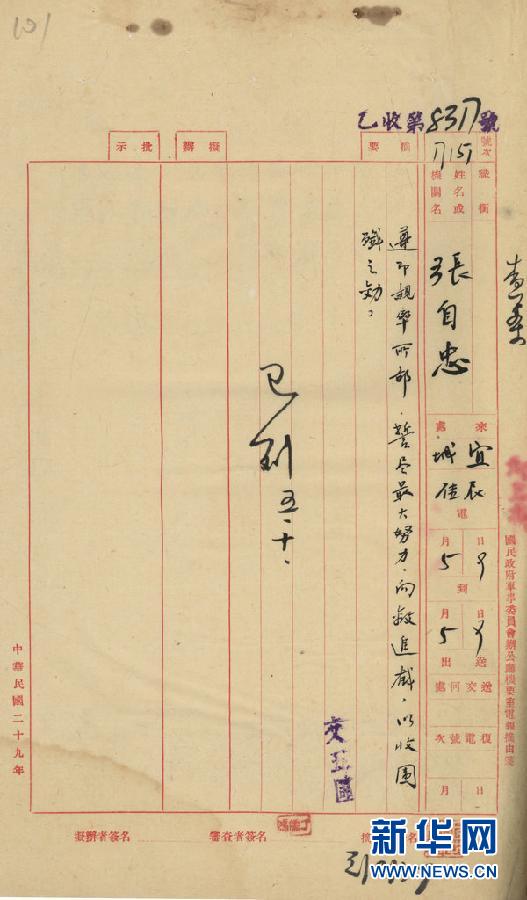 101
乙收第8317號
號次
摘要
擬辦
批示
級銜
姓名或機關名
張自忠
來處
宜城
辰佳
電
月 日
5 9
到
月 日
5 9
送出
送交何處
復電號次
月 日
遵即親率所部，誓尽最大努力，向敌追截，以收圍
殲之効。
已到 五、十、
國民政府軍事委員會辦公廳機要室電報摘由箋
中華民國二十九年
審查者簽名
擬辦者簽名
新华网
WWW.NEWS.CN